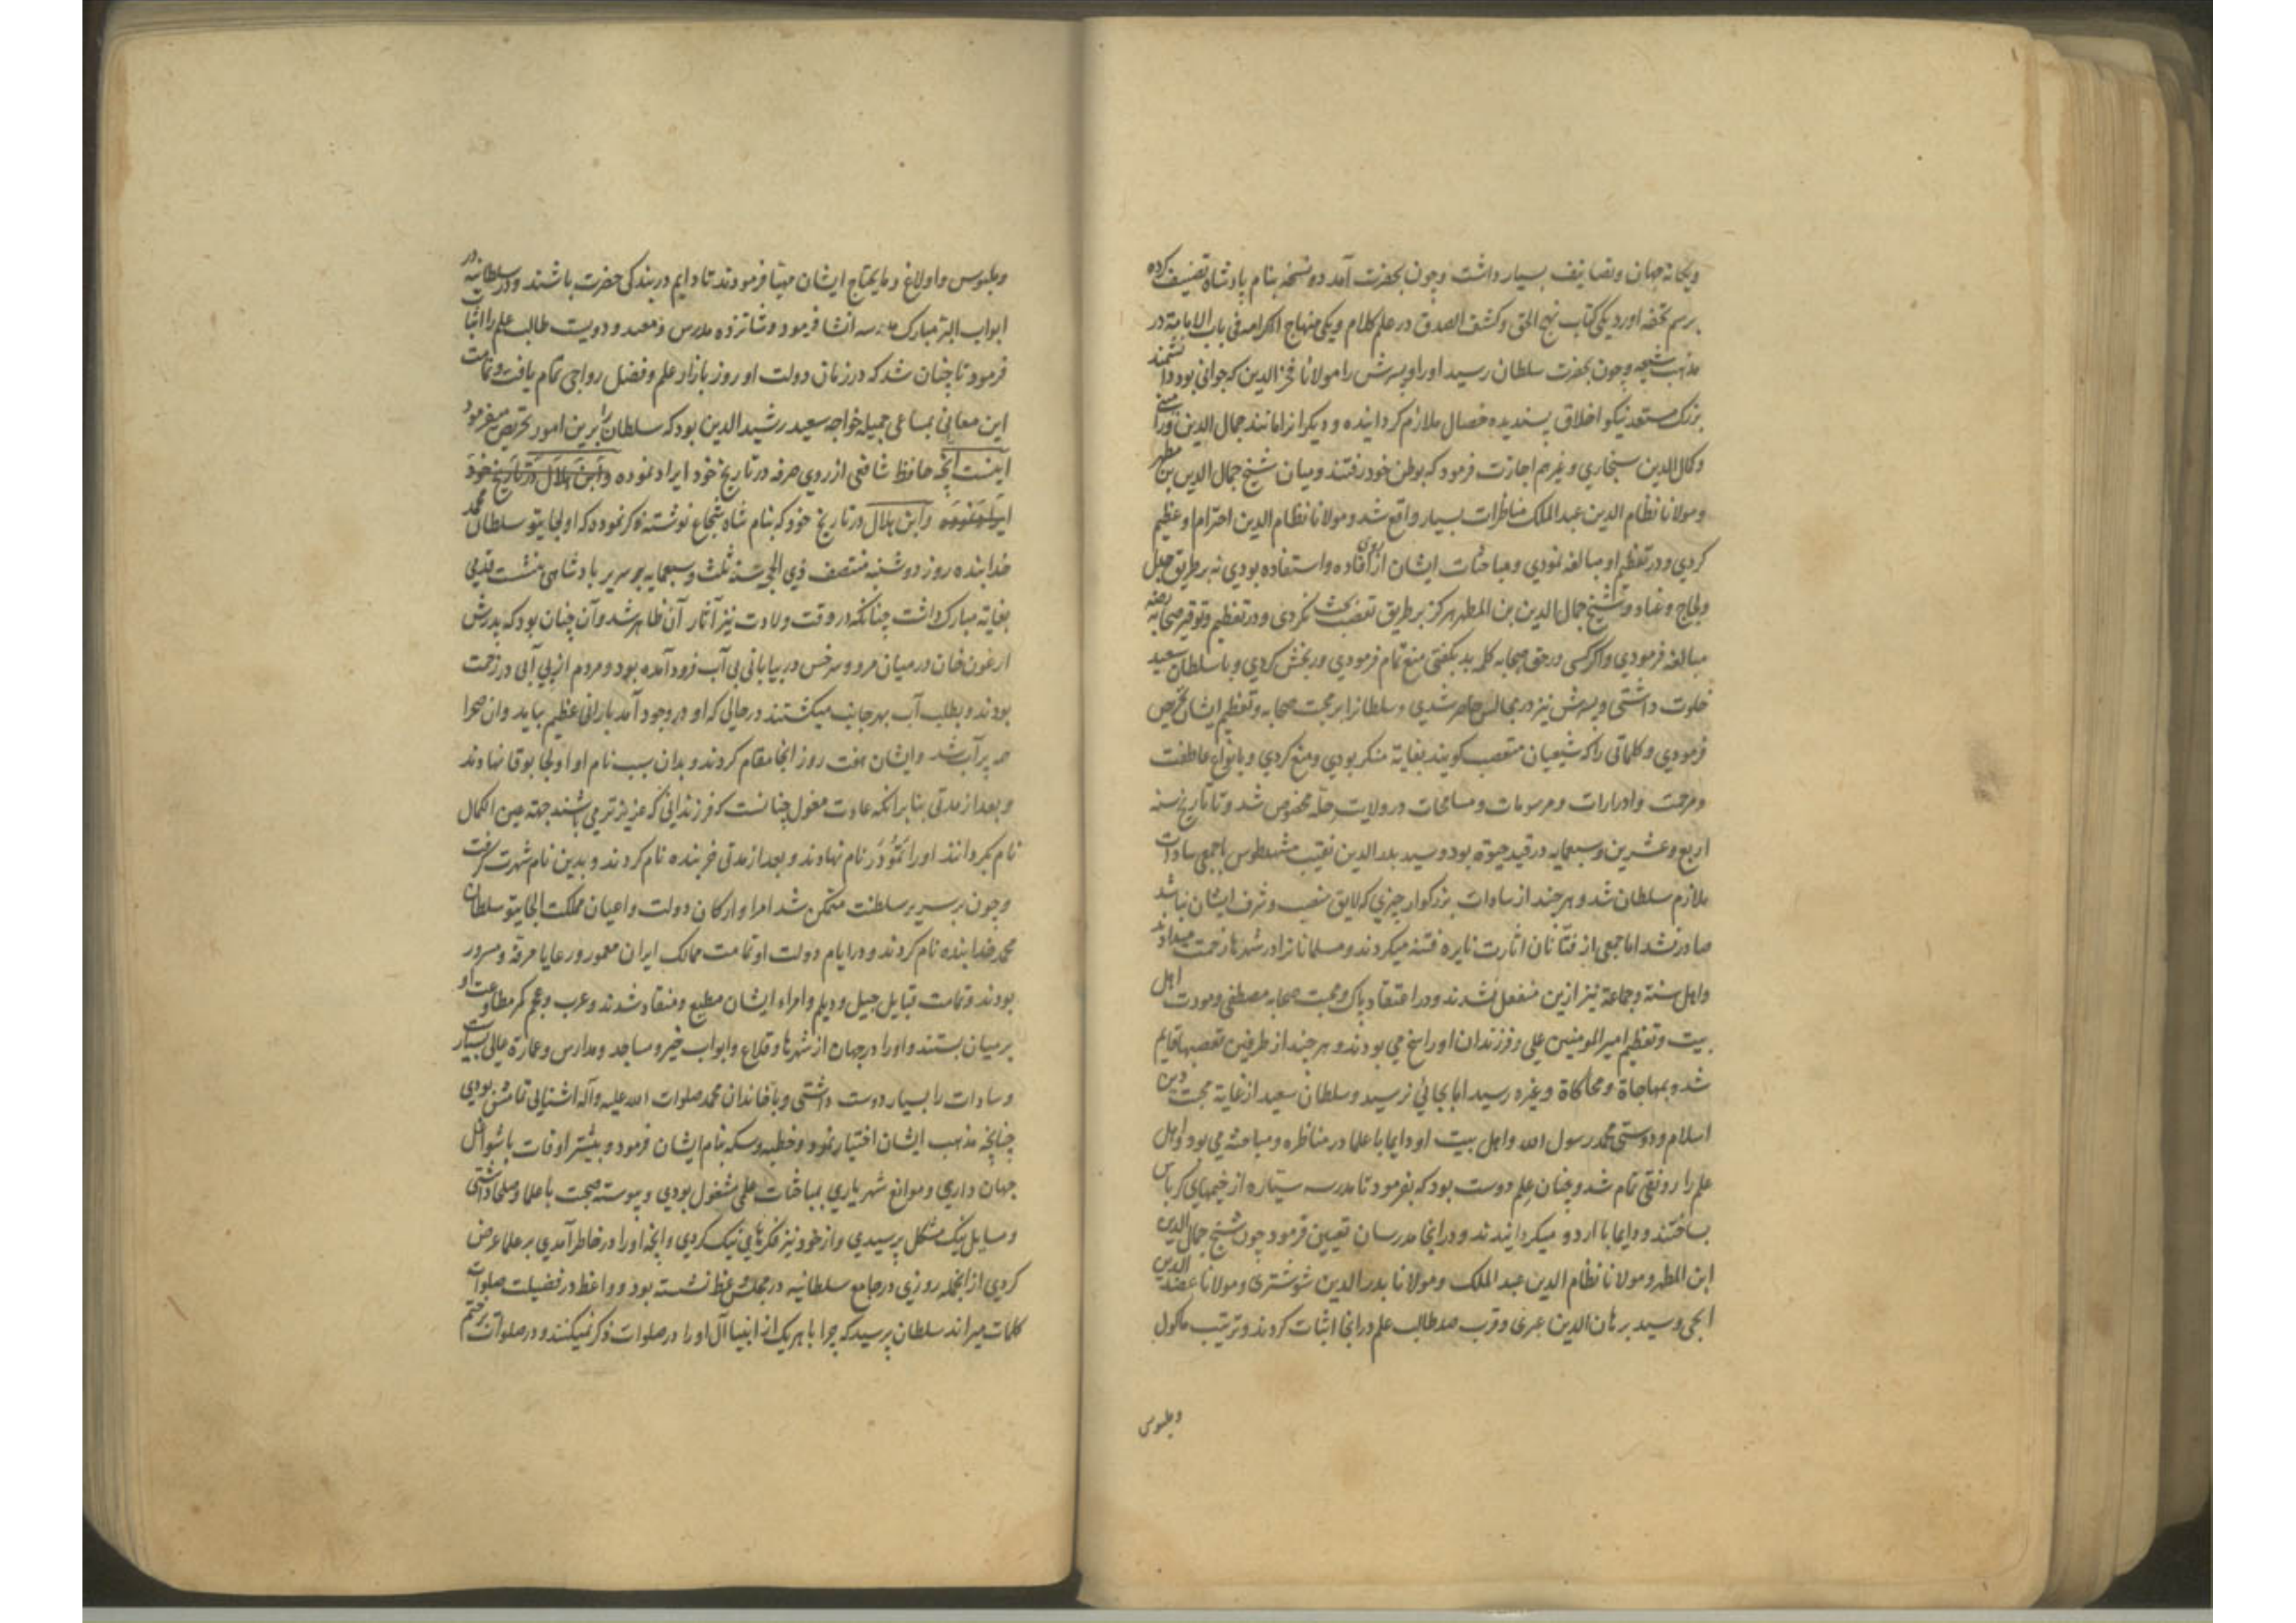 ویکانه جهان وتصانیف بسیار داشت وچون بحضرت آمد دو نسخه بنام پادشاه تصنیف کرده
برسم تحفه اورد یکی کتاب نهج الحق وکشف الصدق در علم کلام ویکی منهاج الکرامه فی باب الامامة در
مذهب شیعه وچون بحضرت سلطان رسید اورا وپسرش را مولانا فخر الدین که جوانی بود دانشمند
بزرک مستعد نیکو اخلاق پسندیده خصال ملازم کردانیده ودیکرانرا مانند جمال الدین
وکمال الدین سنجاری وغیرهم اجازت فرمود که بوطن خود رفتند ومیان شیخ جمال الدین بن مطهر
ومولانا نظام الدین عبد الملک مناظرات بسیار واقع شد ومولانا نظام الدین احترام او عظیم
کردی ودر تعظیم او مبالغه نمودی ومباحثات ایشان از روی افاده واستفاده بودی نه بر طریق جدل
ولجاج وعناد وشیخ جمال الدین بن المطهر هرکز بر طریق تعصب بحث نکردی ودر تعظیم وتوقیر صحابه
مبالغه فرمودی واکر کسی در حق صحابه کلمه بد بکفتی منع تمام فرمودی ورنجش کردی وبا سلطان سعید
خلوت داشتی وپسرش نیز در مجالس حاضر شدی وسلطانرا بر محبت صحابه وتعظیم ایشان تحریص
فرمودی وکلماتی را که شیعیان متعصب کویند بغایة منکر بودی ومنع کردی وبانواع عاطفت
ومرحمت وادرارات ومرسومات ومسامحات در ولایت حله مخصوص شد وتا تاریخ سنه
اربع وعشرین وسبعمایه در قید حیوة بود وسید بدر الدین نقیب مشهد طوس با جمعی سادات
ملازم سلطان شد وهرچند از سادات بزرکوار چیزی که لایق منصب وشرف ایشان نباشد
صادر نشد اما جمعی از فتانان اثارت نایره فتنه میکردند ومسلمانانرا در شهرها زحمت میدادند
واهل سنة وجماعة نیز ازین منفعل نشدند ودر اعتقاد پاک ومحبت صحابه مصطفی ومودت اهل
بیت وتعظیم امیر المومنین علی وفرزندان او راسخ می بودند وهرچند از طرفین تعصبها قایم
شد وبمهاجاة ومحاکاة وغیره رسید اما بجائی نرسید وسلطان سعید از غایة محبت دین
اسلام ودوستی محمد رسول الله واهل بیت او دایما با علما در مناظره ومباحثه می بود واهل
علم را رونقی تمام شد وچنان علم دوست بود که بفرمود تا مدرسه سیاره از خیمهای کرباس
بساختند ودایما با اردو میکردانیدند ودر انجا مدرسان تعیین فرمود چون شیخ جمال الدین
ابن المطهر ومولانا نظام الدین عبد الملک ومولانا بدر الدین شوشتری ومولانا عضد الدین
ایجی وسید برهان الدین عبری وقرب صد طالب علم در انجا اثبات کردند وترتیب ماکول
وملبوس
وملبوس واولاغ وما یحتاج ایشان مهیا فرمودند تا دایم در بندکی حضرت باشند ودر سلطانیه در
ابواب البر مبارک مدرسه انشا فرمود وشانزده مدرس ومعید ودویست طالب علم را اثبات
فرمود تا چنان شد که در زمان دولت او روز بازار علم وفضل رواجی تمام یافت وتمامت
این معانی بمساعی جمیله خواجه سعید رشید الدین بود که سلطان را برین امور تحریص میفرمود
اینست انچه حافظ شافعی از روی حرفه در تاریخ خود ایراد نموده وابن هلال در تاریخ خود
ایراد نموده وابن هلال در تاریخ خود که بنام شاه شجاع نوشته ذکر نموده که اولجایتو سلطان محمد
خدابنده روز دوشنبه منتصف ذی الحجه سنه ثلث وسبعمایه بر سریر پادشاهی بنشست قدمی
بغایة مبارک داشت چنانکه در وقت ولادت نیز آثار آن ظاهر شد وآن چنان بود که پدرش
ارغون خان در میان مرو وسرخس در بیابانی بی آب فرود آمده بود ومردم از بی آبی در زحمت
بودند وبطلب آب بهر جانب میکشتند در حالی که او در وجود آمد بارانی عظیم بیاید وان صحرا
همه پر آب شد وایشان هفت روز انجا مقام کردند وبدان سبب نام او اولجا بوقا نهادند
وبعد از مدتی بنا بر انکه عادت مغول چنانست که فرزندانی که عزیزتر می باشند جهة عین الکمال
نام بکردانند اورا تمودر نام نهادند وبعد از مدتی خربنده نام کردند وبدین نام شهرت کرفت
وچون بر سریر سلطنت متمکن شد امرا وارکان دولت واعیان مملکت الجایتو سلطان
محمد خدابنده نام کردند ودر ایام دولت او تمامت ممالک ایران معمور ورعایا مرفه ومسرور
بودند وتمامت قبایل جیل ودیلم وامراء ایشان مطیع ومنقاد شدند وعرب وعجم کمر مطاوعت او
بر میان بستند واورا در جهان از شهرها وقلاع وابواب خیر ومساجد ومدارس وعمارة عالی بسیار
وسادات را بسیار دوست داشتی وبا خاندان محمد صلوات الله علیه وآله اشنائی تمامش بودی
چنانچه مذهب ایشان اختیار نمود وخطبه وسکه بنام ایشان فرمود وبیشتر اوقات با شواغل
جهان داری وموانع شهریاری بمباحثات علمی مشغول بودی وپیوسته صحبت با علما وصلحا داشتی
ومسایل نیک مشکل پرسیدی واز خود نیز فکرهای نیک کردی وانچه اورا در خاطر آمدی بر علما عرض
کردی از انجمله روزی در جامع سلطانیه در مجلس وعظ نشسته بود وواعظ در فضیلت صلوات
کلمات میراند سلطان پرسید که چرا با هر یک از انبیا آل اورا در صلوات ذکر نمیکنند ودر صلوات